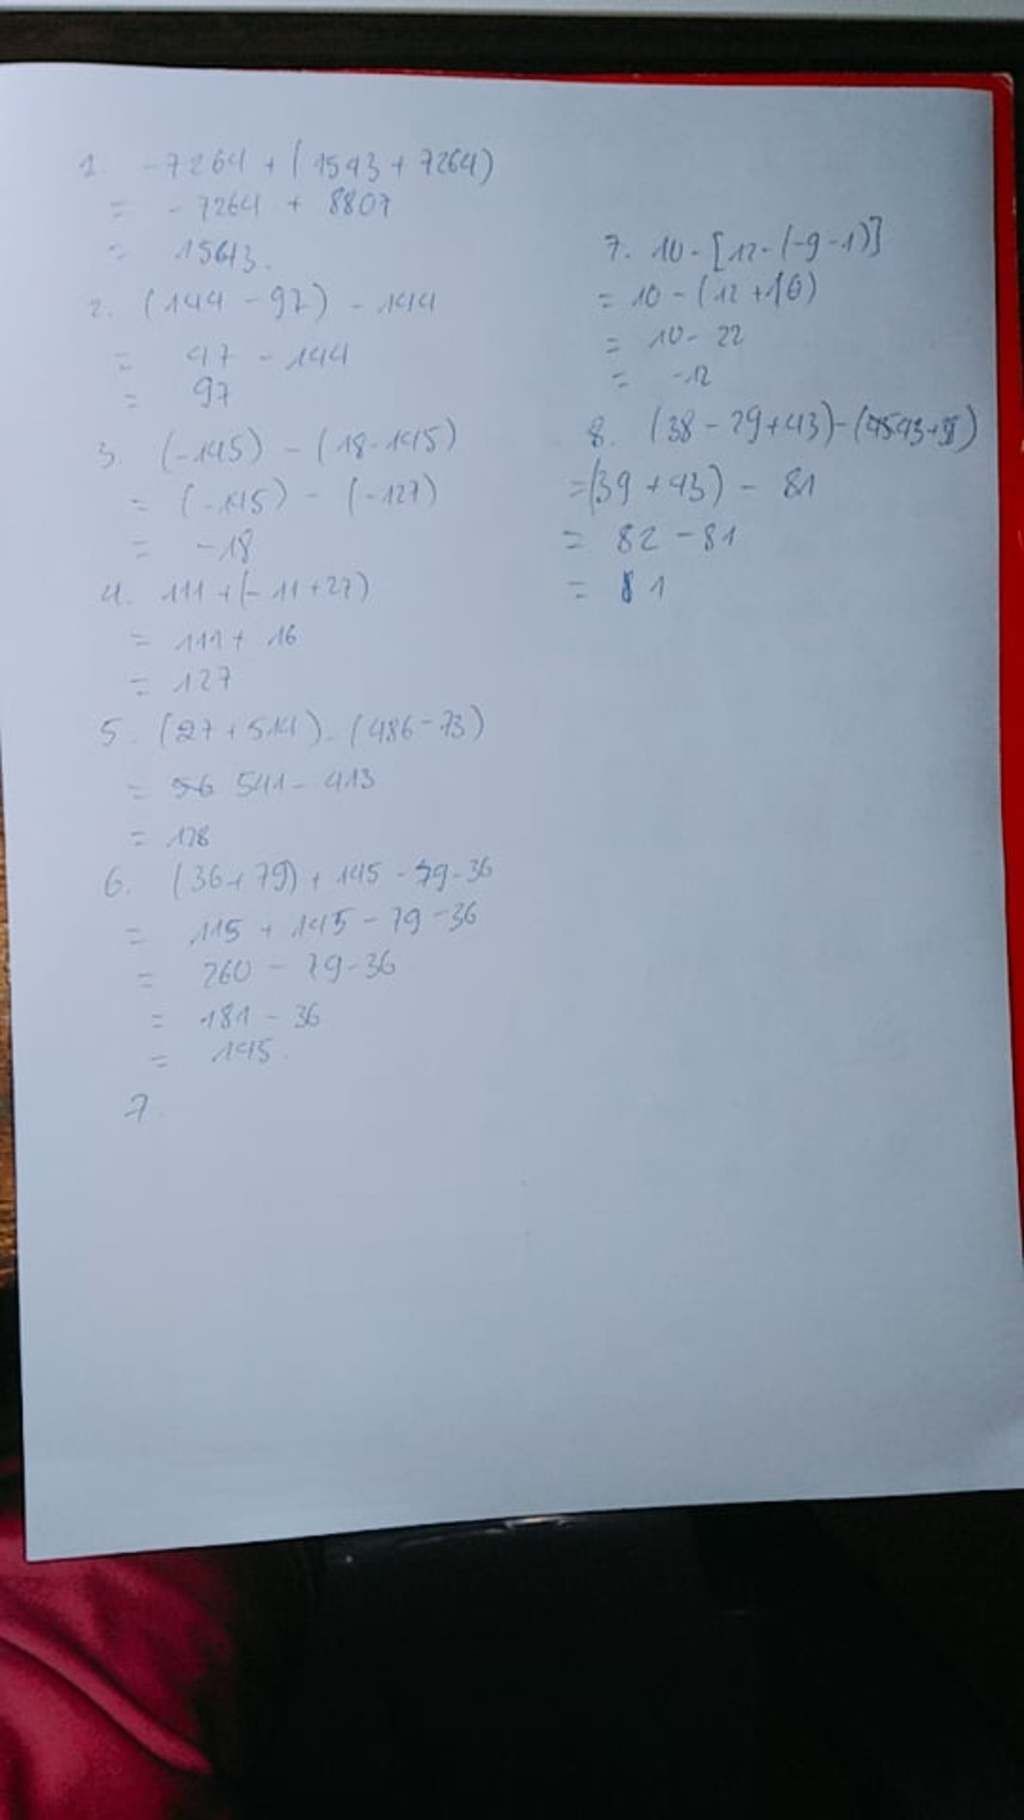 1. -7264 + (1543 + 7264)
= -7264 + 8807
= 15643.
2. (144 - 97) - 144
= 47 - 144
= 97
3. (-145) - (18-145)
= (-145) - (-127)
= -18
4. 111 + (-11+27)
= 111 + 16
= 127
5. (27 + 514) - (486 - 73)
= 541 - 413
= 128
6. (36 + 79) + 145 - 79 - 36
= 115 + 145 - 79 - 36
= 260 - 79 - 36
= 181 - 36
= 145.
7.
7. 10 - [12 - (-9 - 1)]
= 10 - (12 + 10)
= 10 - 22
= -12
8. (38 - 29 + 43) - (
= (39 + 43) - 81
= 82 - 81
= 81